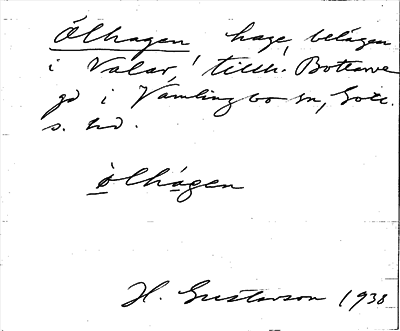 Ölhagen, hage, belägen
i Valar, tillh. Bottarve
gd i Vamlingbo sn, Gotl.
s. hd.
òlhágen
H. Gustavson 1938